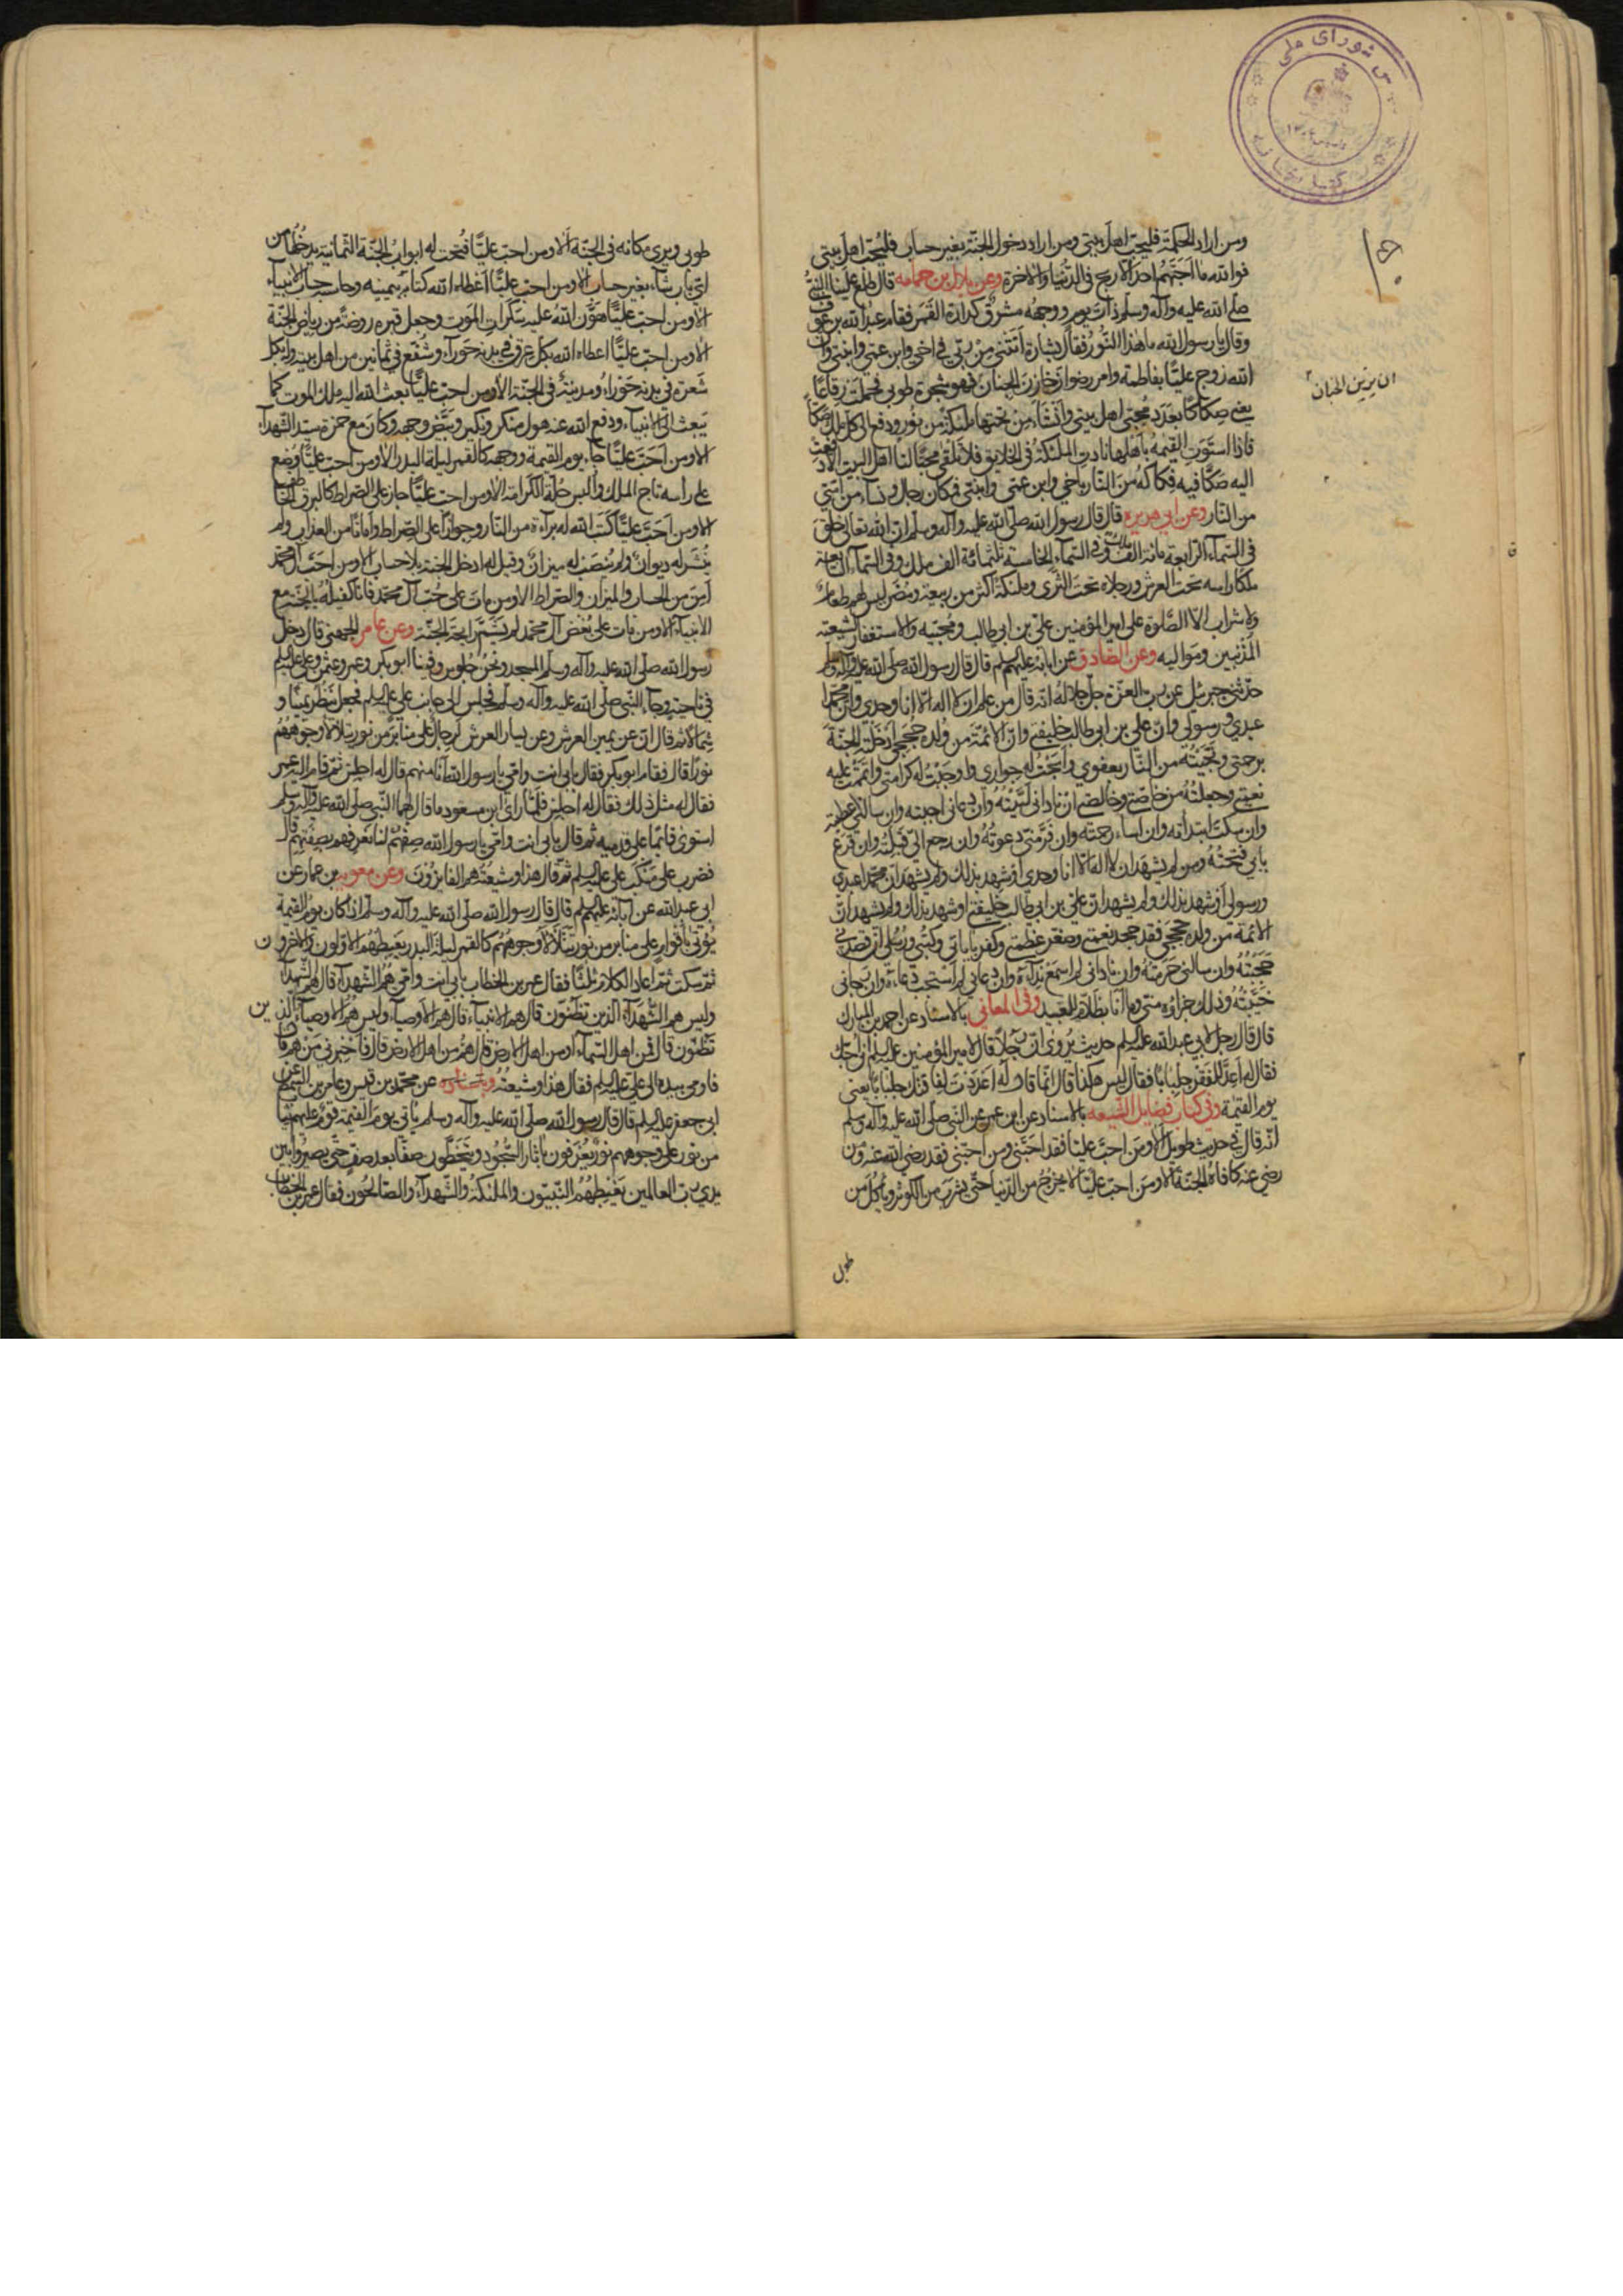 ومن اراد الحكمة فليحبّ اهل بيتي ومن اراد دخول الجنة بغير حساب فليحبّ اهل بيتي
فوالله ما احبّهم احد الا ربح في الدّنيا والاخرة وعن بلال بن حمامه قال طلع علينا النبيّ
صلّى الله عليه وآله وسلّم ذات يوم ووجهه مشرق كدارة القمر فقام عبد الله بن عوف
وقال يا رسول الله ما هذا النّور فقال بشارة اتتني من ربّي في اخي وابن عمّي وابنتي وان
الله زوج عليّا بفاطمة وامر رضوان خازن الجنان فهزّ شجرة طوبى فحملت رقاعًا
يعني صكاكا بعدد محبّي اهل بيتي وانشأ من تحتها ملئكة من نور ودفع الى كلّ ملك صكّا
فاذا استوت القيمة باهلها نادت الملئكة في الخلايق فلا تلقى محبّا لنا اهل البيت الا دفعت
اليه صكّا فيه فكاكه من النّار باخي وابن عمّي وابنتي فكاك رجال ونساء من امّتي
من النّار وعن ابي هريره قال قال رسول الله صلّى الله عليه وآله وسلم ان الله تعالى خلق
في السّماء الرّابعة مائة الف ملك وفي السّماء الخامسة ثلثمائة الف ملك وفي السّماء السّابعة
ملكا راسه تحت العرش ورجلاه تحت الثّرى وملئكة اكثر من ربيعة ومضر ليس لهم طعام
ولا شراب الّا الصّلوة على امير المؤمنين عليّ بن ابي طالب ومحبّيه والاستغفار لشيعته
المذنبين ومواليه وعن الصّادق عن ابائه عليهم السلم قال قال رسول الله صلّى الله عليه وآله وسلم
حدّثني جبرئيل عن ربّ العزّة جلّ جلاله انّه قال من علم ان لا اله الّا انا وحدي وانّ محمّدا
عبدي ورسولي وانّ علي بن ابي طالب خليفتي وانّ الائمّة من ولده حججي ادخلته الجنّة
برحمتي ونجّيته من النّار بعفوي وابحت له جواري واوجبت له كرامتي واتممت عليه
نعمتي وجعلته من خاصّتي وخالصتي ان ناداني لبّيته وان دعاني اجبته وان سالني اعطيته
وان سكت ابتدأته وان اساء رحمته وان فرّ منّي دعوته وان رجع اليّ قبلته وان قرع
بابي فتحته ومن لم يشهد ان لا اله الّا انا وحدي او شهد بذلك ولم يشهد انّ محمّدا عبدي
ورسولي او شهد بذلك ولم يشهد انّ عليّ بن ابي طالب خليفتي او شهد بذلك ولم يشهد انّ
الائمة من ولده حججي فقد جحد نعمتي وصغّر عظمتي وكفر باياتي وكتبي ورسلي ان قصدني
حجبته وان سالني حرمته وان ناداني لم اسمع نداءه وان دعاني لم استجب دعاءه وان رجاني
خيّبته وذلك جزاؤه منّي وما انا بظلّام للعبيد وفي المعاني بالاسناد عن احمد بن المبارك
قال قال رجل لابي عبد الله عليه السلم حديث يروى انّ رجلًا قال لامير المؤمنين عليه السلم انّي احبّك
فقال له اعدّ للفقر جلبابًا فقال ليس هكذا قال انّما قال له اعددت لفاقتك جلبابًا يعني
يوم القيمة وفي كتاب فضايل الشّيعه بالاسناد عن ابن عمر عن النّبي صلّى الله عليه وآله وسلم
انّه قال في حديث طويل الا ومن احبّ عليّا فقد احبّني ومن احبّني فقد رضي الله عنه ومن
رضي عنه كافاه الجنّة الا ومن احبّ عليّا لا يخرج من الدّنيا حتّى يشرب من الكوثر وياكل من
طوبى
ان يزيّن الجنان
طوبى ويرى مكانه في الجنّة الا ومن احبّ عليّا فتحت له ابواب الجنّة الثّمانية يدخلها من
ايّ باب شاء بغير حساب الا ومن احبّ عليّا اعطاه الله كتابه بيمينه وحاسبه حساب الانبياء
الا ومن احبّ عليّا هوّن الله عليه سكرات الموت وجعل قبره روضة من رياض الجنّة
الا ومن احبّ عليّا اعطاه الله بكلّ عرق في بدنه حوراء وشفّع في ثمانين من اهل بيته وله بكلّ
شعرة في بدنه حوراء ومدينة في الجنّة الا ومن احبّ عليّا بعث الله اليه ملك الموت كما
يبعث الى الانبياء ودفع الله عنه هول منكر ونكير وبيّض وجهه وكان مع حمزة سيّد الشّهداء
الا ومن احبّ عليّا جاء يوم القيمة ووجهه كالقمر ليلة البدر الا ومن احبّ عليّا وضع
على رأسه تاج الملك والبس حلّة الكرامة الا ومن احبّ عليّا جاز على الصّراط كالبرق الخاطف
الا ومن احبّ عليّا كتب الله له براءة من النّار وجوازا على الصّراط وامانًا من العذاب ولم
ينشر له ديوان ولم ينصب له ميزان وقيل له ادخل الجنة بلا حساب الا ومن احبّ آل محمّد
امن من الحساب والميزان والصّراط الا ومن مات على حبّ آل محمّد فانا كفيله بالجنّة مع
الانبياء الا ومن مات على بغض آل محمّد لم يشمّ رايحة الجنّة وعن عامر الجهني قال دخل
رسول الله صلّى الله عليه وآله وسلم المسجد ونحن جلوس وفينا ابو بكر وعمر وعثمن وعلي عليه السلم
في ناحية وجاء النّبي صلّى الله عليه وآله وسلّم فجلس الى جانب علي عليه السلم فجعل ينظر يمينًا و
شمالًا ثم قال انّ عن يمين العرش وعن يسار العرش لرجالًا على منابر من نور يتلألأ وجوههم
نورًا قال فقام ابو بكر فقال بابي انت وامّي يا رسول الله انا منهم قال له اجلس ثم قام اليه عمر
فقال له مثل ذلك فقال له اجلس فلمّا رأى ابن مسعود ما قال لهما النّبي صلّى الله عليه وآله وسلم
استوى قائمًا على قدميه ثم قال بابي انت وامّي يا رسول الله صفهم لنا نعرفهم بصفتهم قال
فضرب على منكب علي عليه السلم ثم قال هذا وشيعته هم الفايزون وعن معويه بن عمار عن
ابي عبد الله عن آبائه عليهم السلم قال قال رسول الله صلّى الله عليه وآله وسلّم اذا كان يوم القيمة
يؤتى باقوام على منابر من نور يتلألأ وجوههم كالقمر ليلة البدر يغبطهم الاوّلون والاخرون
ثم سكت ثم اعاد الكلام ثلثًا فقال عمر بن الخطاب بابي انت وامّي هم الشّهداء قال هم الشّهداء
وليس هم الشّهداء الّذين تظنّون قال هم الانبياء قال هم الانبياء وليس هم الانبياء الّذين
تظنّون قال فمن اهل السّماء او من اهل الارض قال هم من اهل الارض قال فاخبرني من هم قال
فاومى بيده الى عليّ عليه السلم فقال هذا وشيعته وباسناده عن محمّد بن قيس وعامر بن السّمط عن
ابي جعفر عليه السلم قال قال رسول الله صلّى الله عليه وآله وسلم ياتي يوم القيمة قوم عليهم ثياب
من نور على وجوههم نور يعرفون باثار السّجود يتخطّون صفّا بعد صفّ حتّى يصيروا بين
يدي ربّ العالمين يغبطهم النّبيّون والملئكة والشّهداء والصّالحون فقال عمر بن الخطاب